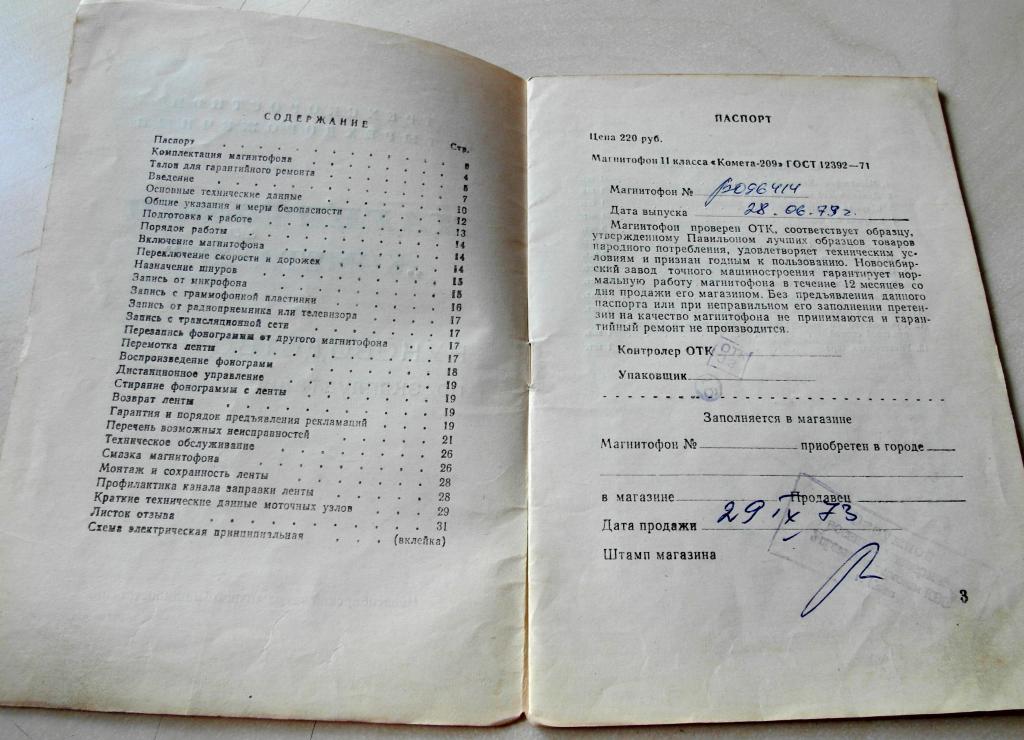 СОДЕРЖАНИЕ
Стр.
Паспорт
Комплектация магнитофона
Талон для гарантийного ремонта
Введение
Основные технические данные
Общие указания и меры безопасности
Подготовка к работе
Порядок работы
Включение магнитофона
Переключение скорости и дорожек
Назначение шнуров
Запись от микрофона
Запись с граммофонной пластинки
Запись от радиоприемника или телевизора
Запись с трансляционной сети
Перезапись фонограммы от другого магнитофона
Перемотка ленты
Воспроизведение фонограмм
Дистанционное управление
Стирание фонограммы с ленты
Возврат ленты
Гарантия и порядок предъявления рекламаций
Перечень возможных неисправностей
Техническое обслуживание
Смазка магнитофона
Монтаж и сохранность ленты
Профилактика канала заправки ленты
Краткие технические данные моточных узлов
Листок отзыва
Схема электрическая принципиальная
4
7
10
12
13
14
14
14
15
15
16
17
17
17
17
18
19
19
19
21
26
26
28
28
29
31
(вклейка)
ПАСПОРТ
Цена 220 руб.
Магнитофон II класса «Комета-209» ГОСТ 12392—71
Магнитофон №
Дата выпуска 28.06.73г.
Магнитофон проверен ОТК, соответствует образцу,
утвержденному Павильоном лучших образцов товаров
народного потребления, удовлетворяет техническим ус-
ловиям и признан годным к пользованию. Новосибир-
ский завод точного машиностроения гарантирует нор-
мальную работу магнитофона в течение 12 месяцев со
дня продажи его магазином. Без предъявления данного
паспорта или при неправильном его заполнении претен-
зии на качество магнитофона не принимаются и гаран-
тийный ремонт не производится.
Контролер ОТК
Упаковщик
Заполняется в магазине
Магнитофон № приобретен в городе
в магазине Продавец
Дата продажи 29 IX 73
Штамп магазина
3